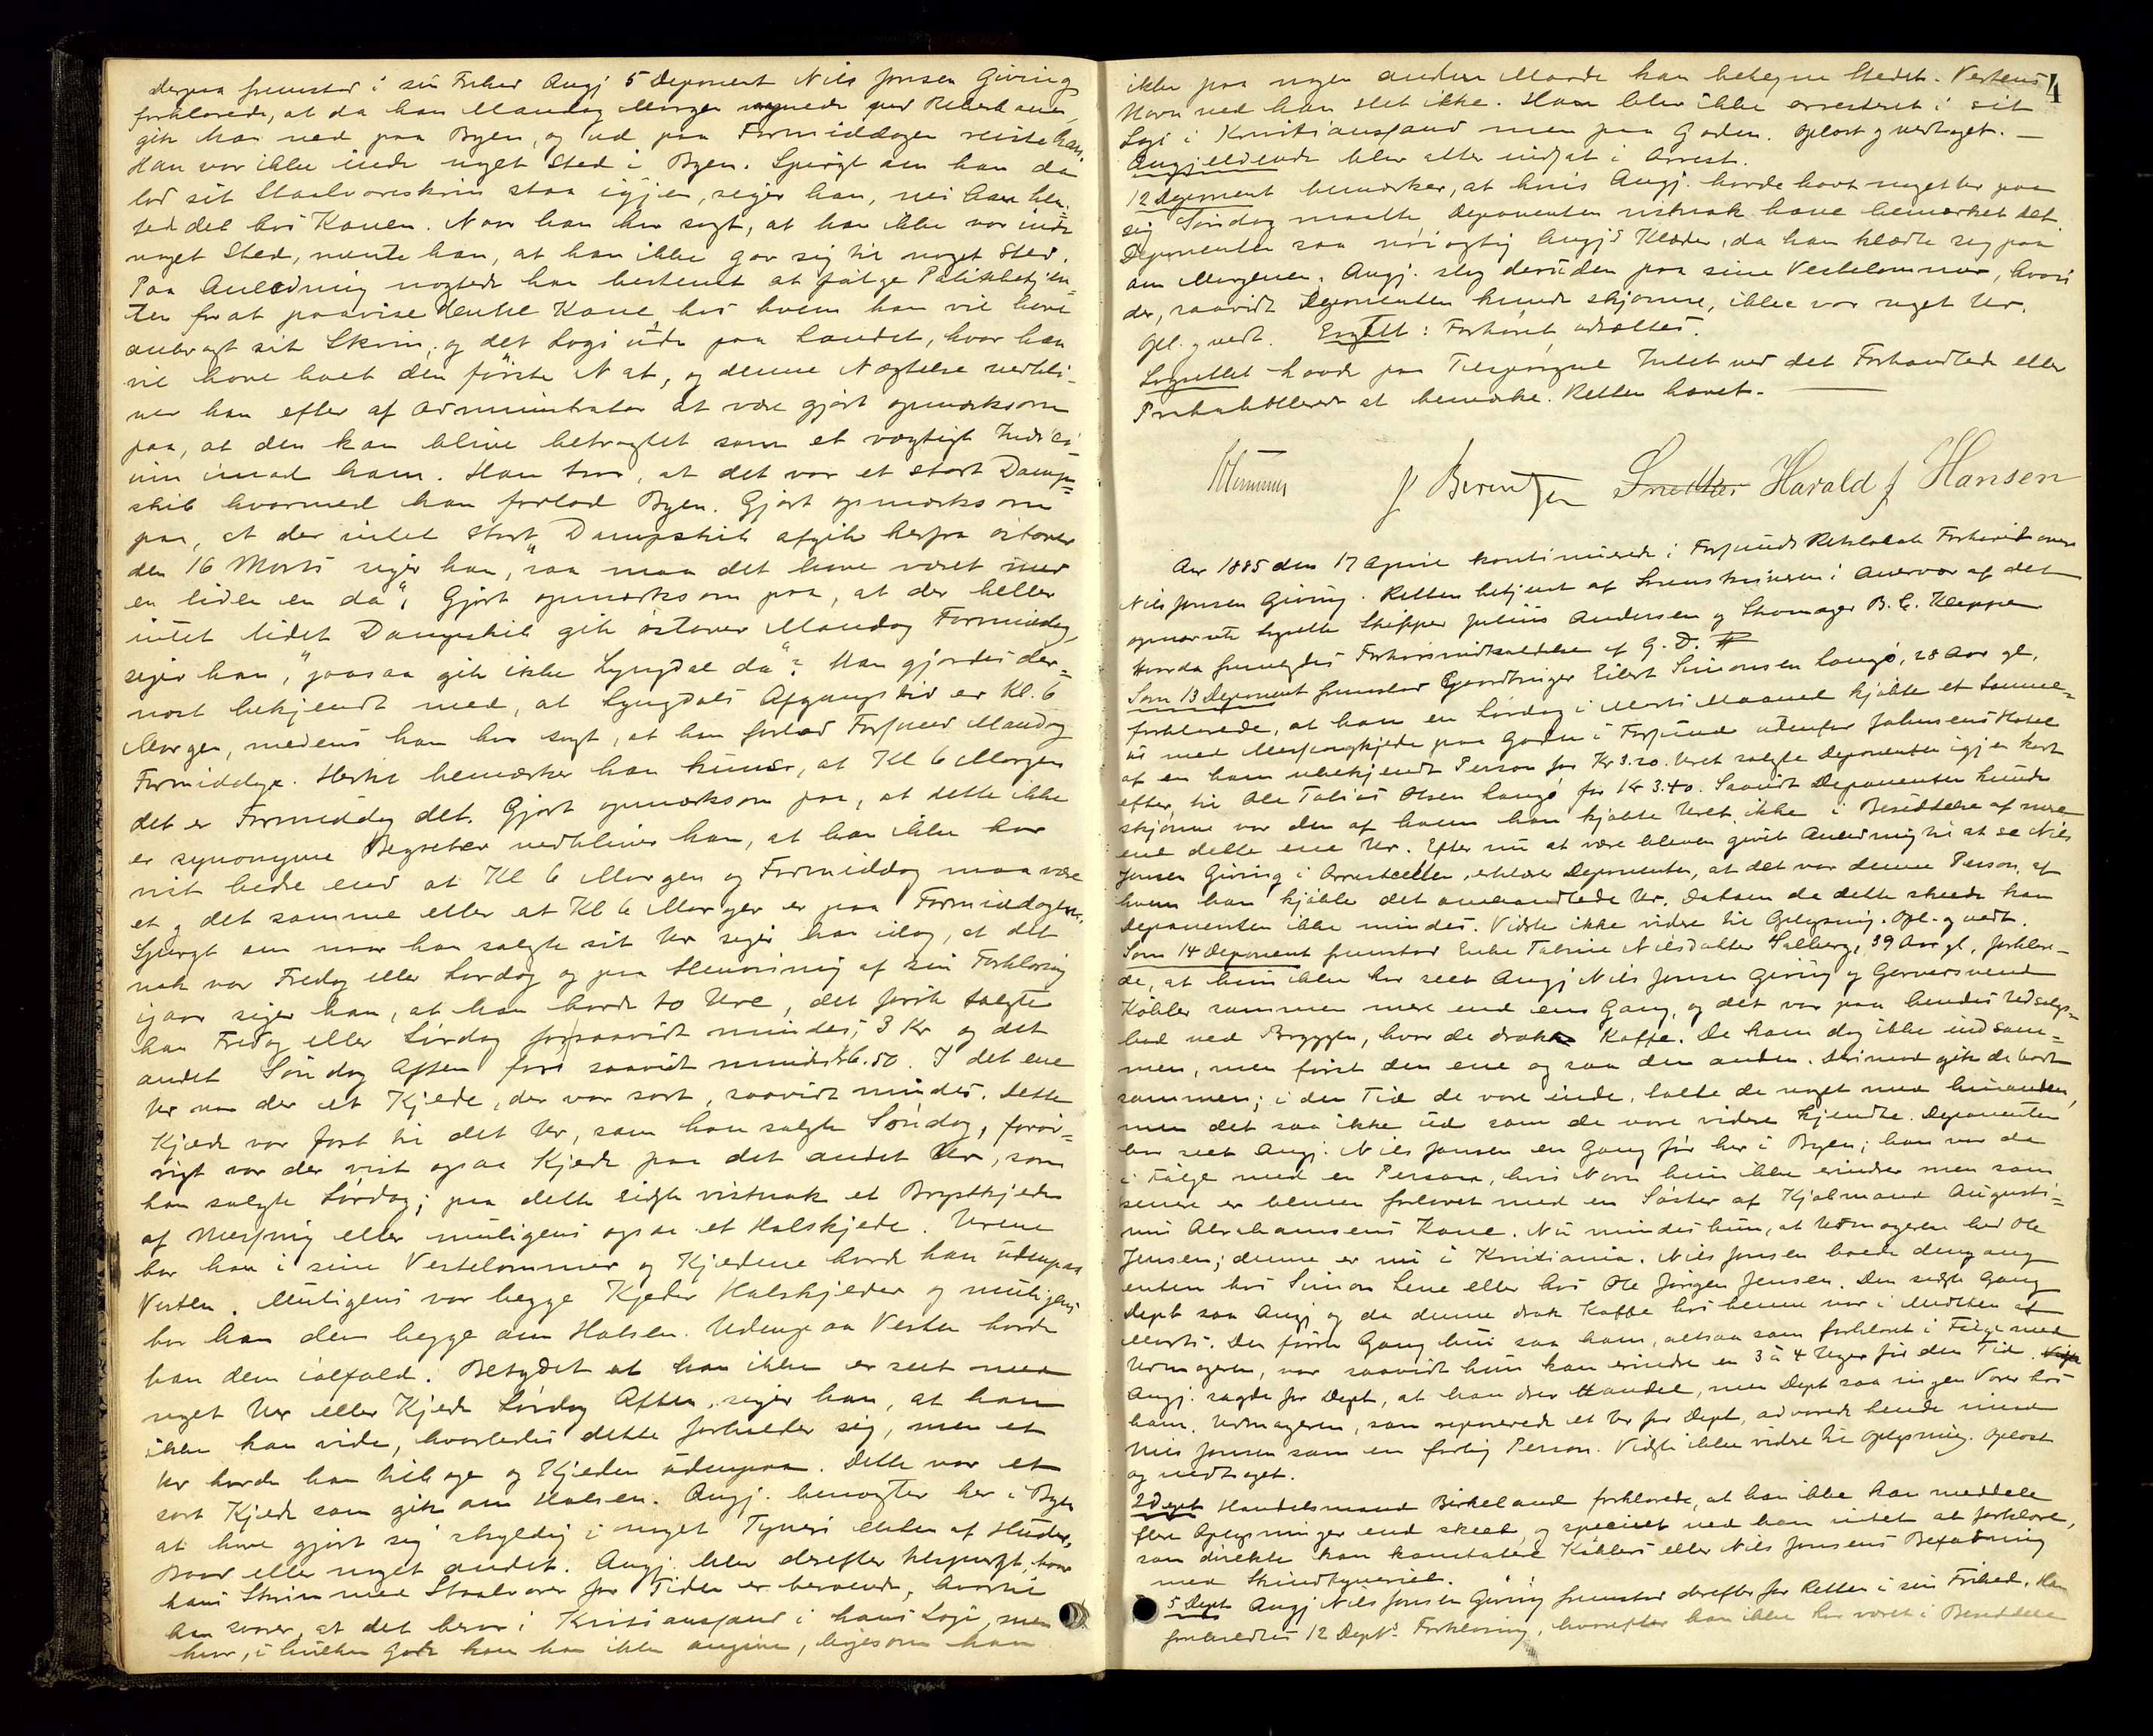 derpaa fremstod i sin Frihed Angj 5 Deponent Nils Jonsen Giving
forklarede, at da han Mandag Morgen vaagnede
gik han ned paa Byen, og ud paa Formiddagen reiste han.
Han var ikke inde noget Sted i Byen. Spurgt om han da
lod sit Staalvareskrin staa igjen, siger han, nei han hen-
tede det hos Konen. Naar han har sagt, at han ikke var inde
noget Sted, mente han, at han ikke gav sig til noget Sted.
Paa Anledning nægtede han bestemt at følge Politibetjen-
ten for at paavise denne Kone hos hvem han vil have
anbragt sit Skrin, og det Logi ude paa Landet, hvor han
vil have havt den første Nat, og denne Nægtelse vedbli-
ver han efter af Administrator at være gjort opmærksom
paa, at den kan blive betragtet som et vægtigt Indici-
um imod ham. Han tror, at det var et stort Damp-
skib hvormed han forlod Byen. Gjort opmærksom
paa, at der intet stort Dampskib afgik herfra østover
den 16 Marts siger han, "saa maa det have været med
en liden en da", Gjort opmærksom paa, at der heller
intet lidet Dampskib gik østover Mandag Formiddag,
siger han, "jaasaa gik ikke Lyngdal da"? Han gjordes der-
næst bekjendt med, at Lyngdals Afgangstid er Kl. 6
Morgen, medens han har sagt, at han forlod Farsund Mandag
Formiddag. Hertil bemærker han kuns, at Kl 6 Morgen
det er Formiddag det. Gjort opmærksom paa, at dette ikke
er synonyme Begreber vedbliver han, at han ikke har
vidst bedre end at Kl 6 Morgen og Formiddag maa være
et og det samme eller at Kl 6 Morgen er paa Formiddagen.
Spurgt om naar han solgte sit Ur siger han idag, at det
nok var Fredag eller Lørdag og paa Henvisning af sin Forklaring
igaar siger han, at han havde to Ure, det første solgte
han Fredag eller Lørdag for saavidt mindes, 3 Kr og det
andet Søndag Aften for saavidt mindes 6.50. I det ene
Ur var der et Kjede, der var sort, saavidt mindes. Dette
Kjede var fast til det Ur, som han solgte Søndag, forøv-
rigt var der vist ogsaa Kjede paa det andet Ur, som
han solgte Lørdag; paa dette sidste vistnok et Brystkjede
af Messing eller muligens ogsaa et Halskjede. Urene
bar han i sine Vestelommer og Kjederne havde han udenpaa
Vesten. Muligens var begge Kjeder Halskjeder og muligens
bar han dem begge om Halsen. Udenpaa Vesten havde
han dem ialfald. Betydet at han ikke er seet med
noget Ur eller Kjede Lørdag Aften, siger han, at han
ikke kan vide, hvorledes dette forholder sig, men et
Ur havde han tilbage og Kjeden udenpaa. Dette var et
sort Kjede som gik om Halsen. Angj. benægter her i Byen
at have gjort sig skyldig i noget Tyveri enten af Huder,
Baad eller noget andet. Angj. blev derefter tilspurgt, hvor
hans Skrin med Staalvarer for Tiden er beroende, hvortil
han svarer, at det beror i Kristiansand i hans Logi, men
hvor, i hvilken Gade kan han ikke angive, ligesom han
4
ikke paa nogen anden Maade kan betegne Stedet. Vertens
Navn ved han slet ikke. Han blev ikke arresteret i sit
Logi i Kristiansand men paa Gaden. Oplæst og vedtaget. —
Angjældende blev atter indsat i Arrest.
12 Deponent bemærker, at hvis Angj. havde havt noget Ur paa
sig Søndag maatte Deponenten vistnok have bemærket det.
Deponenten saa nøiagtig Angjs Klæder, da han klædte sig paa
om Morgenen, Angj. slog desuden paa sine Vestelommer, hvori
der, saavidt Deponenten kunde skjønne, ikke var noget Ur.
Opl. og vedt. Eragtet: Forhøret udsættes.
Lagrettet havde paa Tilspørgsel Intet ved det Forhandlede eller
Protokollerede at bemærke. Retten hævet. —
J Berentzen Harald J Hansen
Aar 1885 den 17 April kontinuerede i Farsunds Retslokale Forhøret over
Nils Jonsen Giving. Retten betjent af Sorenskriveren i Overvær af det
opnævnte Lagrette Skipper Julius Andersen og Skomager B. C. Kleppe
Hvorda fremlagdes Forhørsindkaldelse af G. D.
Som 13 Deponent fremstod Gaardbruger Eilert Simonsen Langø, 28 Aar gl.
forklarede, at han en Lørdag i Marts Maaned kjøbte et Lomme-
ur med Messingkjede paa Gaden i Farsund udenfor Jahnsens Hotel
af en ham ubekjendt Person for Kr 3.20. Uret solgte Deponenten igjen kort
efter til Ole Tobias Olsen Langø for Kr 3.40. Saavidt Deponenten kunde
skjønne var den af hvem han kjøbte Uret ikke i Besiddelse af mere
end dette ene Ur. Efter nu at være bleven givet Anledning til at se Nils
Jonsen Giving i Arrestcellen, erklærer Deponenten, at det var denne Person, af
hvem han kjøbte det omhandlede Ur. Datoen da dette skede kan
Deponenten ikke mindes. Vidste ikke videre til Oplysning. Opl. og vedt.
Som 14 Deponent fremstod Enke Tabine Nilsdatter Salberg, 39 Aar gl, forklare-
de, at hun ikke har seet Angj Nils Jonsen Giving og Garversvend
Köhler sammen mere end een Gang, og det var paa hendes Udsalgs-
bod ved Bryggen, hvor de drak Kaffe. De kom dog ikke ind sam-
men, men først den ene og saa den anden. Derimod gik de bort
sammen; i den Tid de vare inde, talte de noget med hinanden,
men det saa ikke ud som de vare videre kjendte. Deponenten
har seet Angj. Nils Jonsen en Gang før her i Byen; han var da
i Følge med en Person, hvis Navn hun ikke erindrer men som
senere er bleven forlovet med en Søster af Kjøbmand Augusti-
nus Abrahamsens Kone. Nu mindes hun, at Urmageren hed Ole
Jensen; denne er nu i Kristiania. Nils Jonsen boede dengang
enten hos Simon Lene eller hos Ole Jørgen Jensen. Den sidste Gang
Dept saa Angj og da denne drak Kaffe hos hende var i Midten af
Marts. Den første Gang hun saa ham, altsaa som forklaret i Følge med
Urmageren, var saavidt hun kan erindre en 3 à 4 Uger før den Tid.
Angj. sagde for Dept, at han drev Handel, men Dept saa ingen Varer hos
ham. Urmageren, som reparerede et Ur for Dept, advarede hende imod
Nils Jonsen som en farlig Person. Vidste ikke videre til Oplysning. Oplæst
og vedtaget.
2 Dept Handelsmand Birkeland forklarede, at han ikke kan meddele
flere Oplysninger end skeet, og specielt ved han intet at forklare,
som direkte kan konstatere Köhlers eller Nils Jonsens Befatning
med Skindtyveriet.
5 Dept Angj Nils Jonsen Giving fremstod derefter for Retten i sin Frihed. Han
foreholdtes 12 Depts Forklaring, hvorefter han ikke har været i Besiddelse